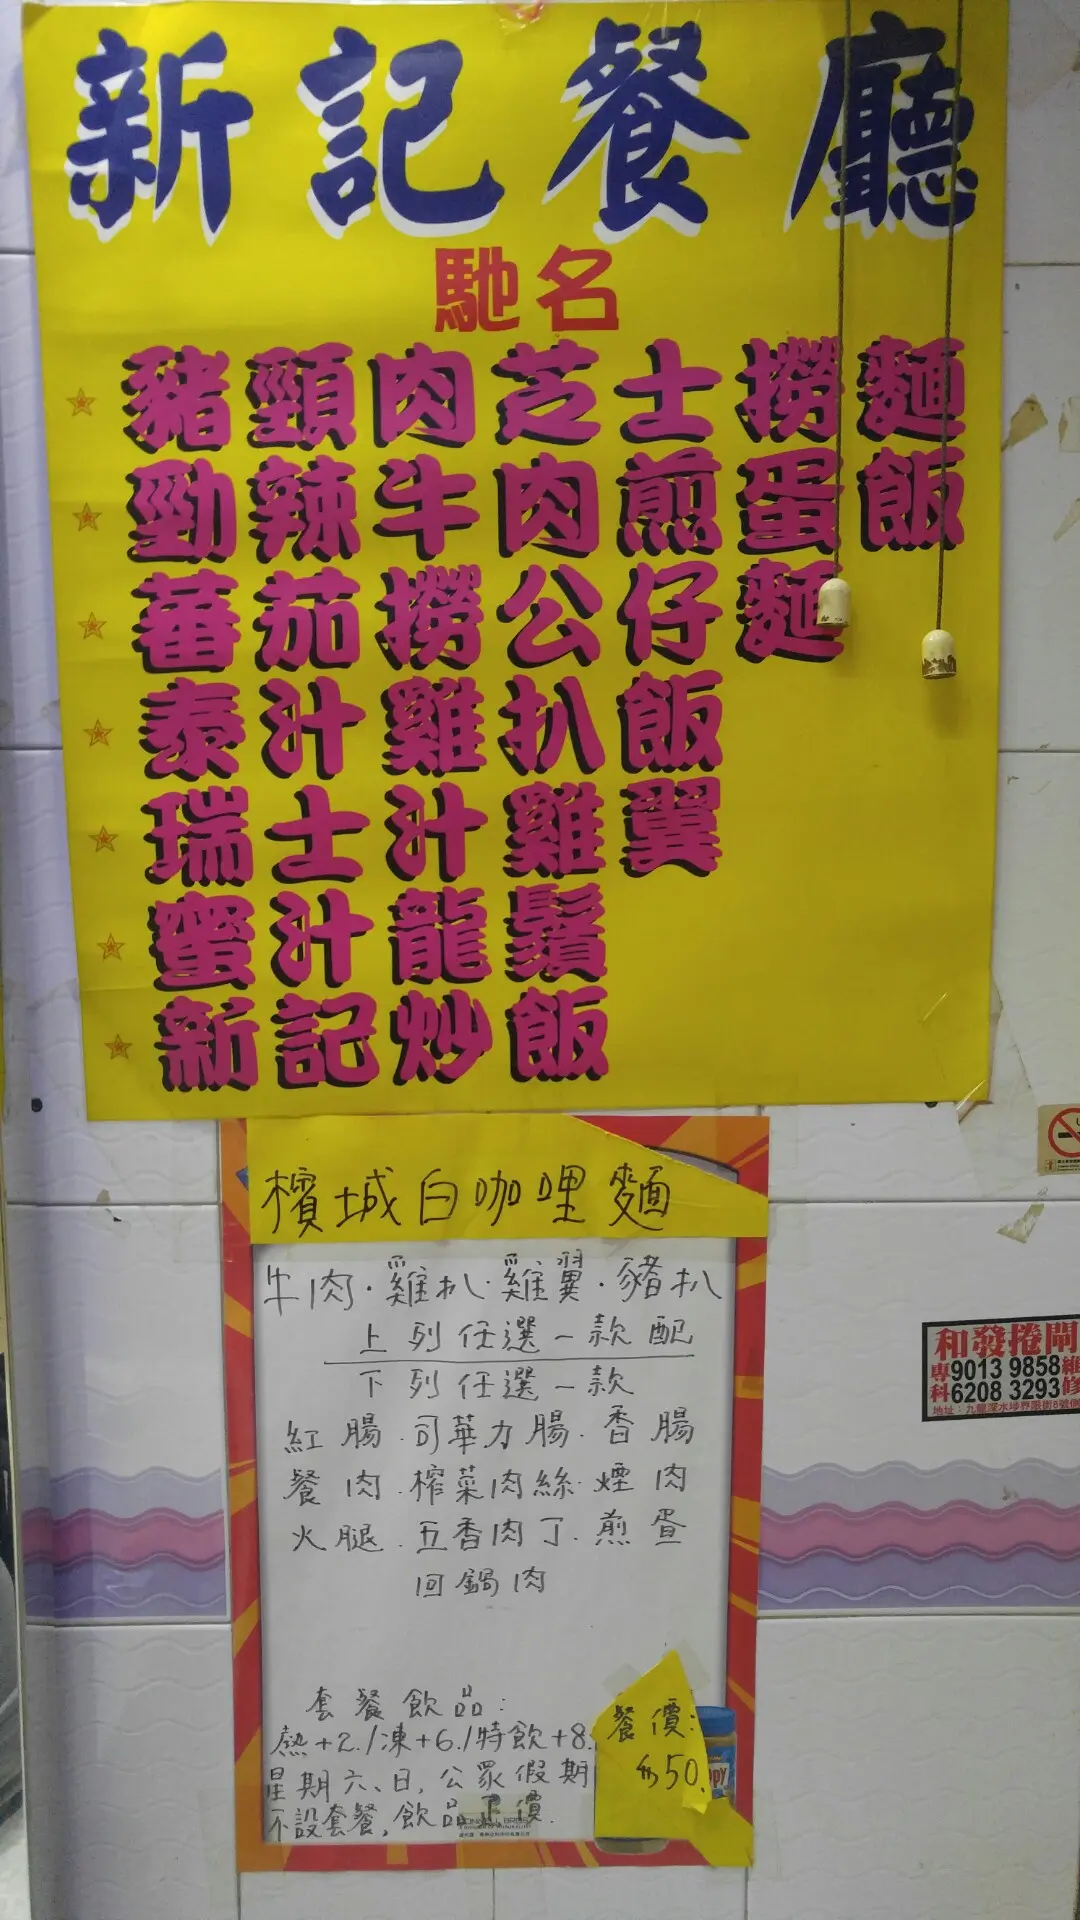 新記餐廳
馳名
豬頸肉芝士撈麵
勁辣牛肉煎蛋飯
蕃茄撈公仔麵
泰汁雞扒飯
瑞士汁雞翼
蜜汁龍鬚
新記炒飯
檳城白咖哩麵
牛肉·雞扒·雞翼·豬扒
上列任選一款配
下列任選一款
紅腸.司華力腸.香腸
餐肉.榨菜肉絲.煙肉
火腿.五香肉丁.煎蛋
回鍋肉
套餐飲品:
熱+2./凍+6./特飲+8.
星期六、日,公眾假期
不設套餐,飲品正價.
餐價:
$50.
和發捲閘
專科
9013 9858
6208 3293
維修
地址:九龍深水埗界限街8號